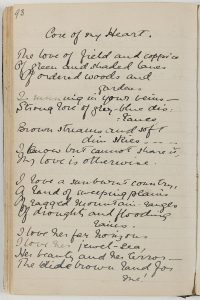 93
Core of my Heart.
The love of field and coppice
Of green and shaded lanes
Of ordered woods and
gardens
Is running in your veins –
Strong love of grey-blue dis-
tance,
Brown streams and soft
dim skies ....
I know but cannot share it,
My love is otherwise.
I love a sunburnt country,
A land of sweeping plains
Of ragged mountain-ranges
Of droughts and flooding
rains.
I love her far horizons
I love her jewel-sea,
Her beauty and her terror –
The wide brown land for
me!